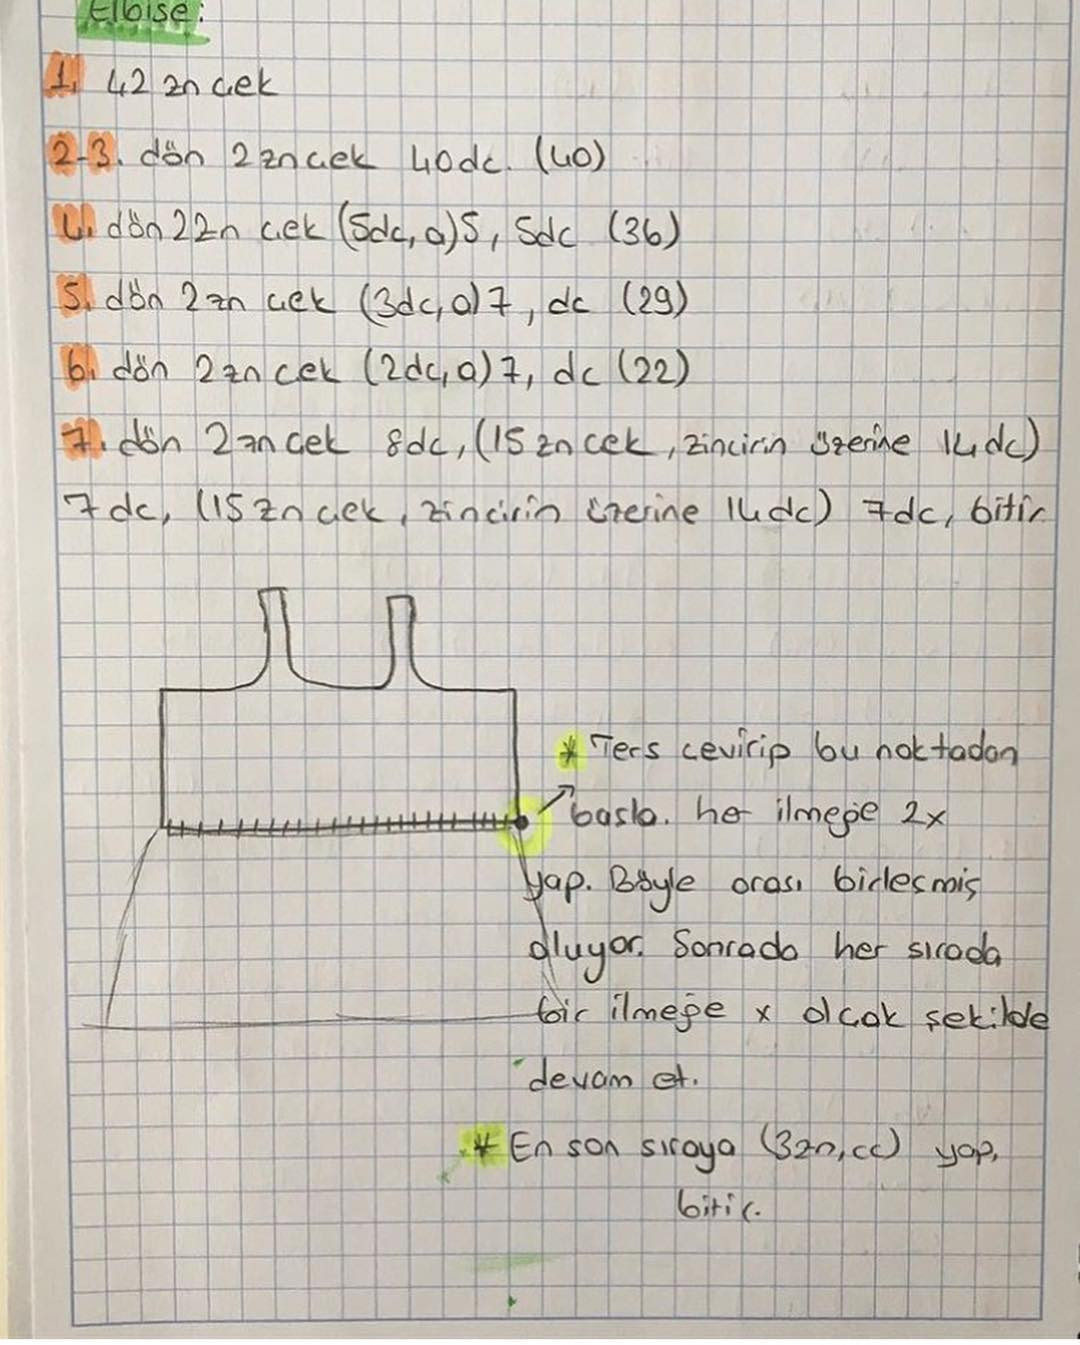 Elbise:
1. 42 zn çek
2-3. dön 2 zn çek 40dc. (40)
4. dön 2 zn çek (5dc, a)5, 5dc (36)
5. dön 2 zn çek (3dc, a)7, dc (29)
6. dön 2 zn çek (2dc, a)7, dc (22)
7. dön 2 zn çek 8dc, (15 zn çek, zincirin üzerine 14 dc)
7dc, (15 zn çek, zincirin üzerine 14 dc) 7dc, bitir
* Ters çevirip bu noktadan
başla. her ilmeğe 2x
yap. Böyle orası birleşmiş
oluyor. Sonrada her sırada
bir ilmeğe x olcak şekilde
devam et.
* En son sıraya (3zn, cc) yap,
bitir.